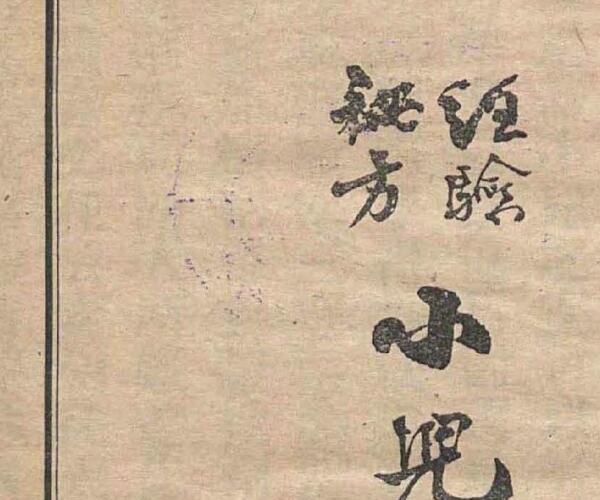 經驗
秘方
小兒